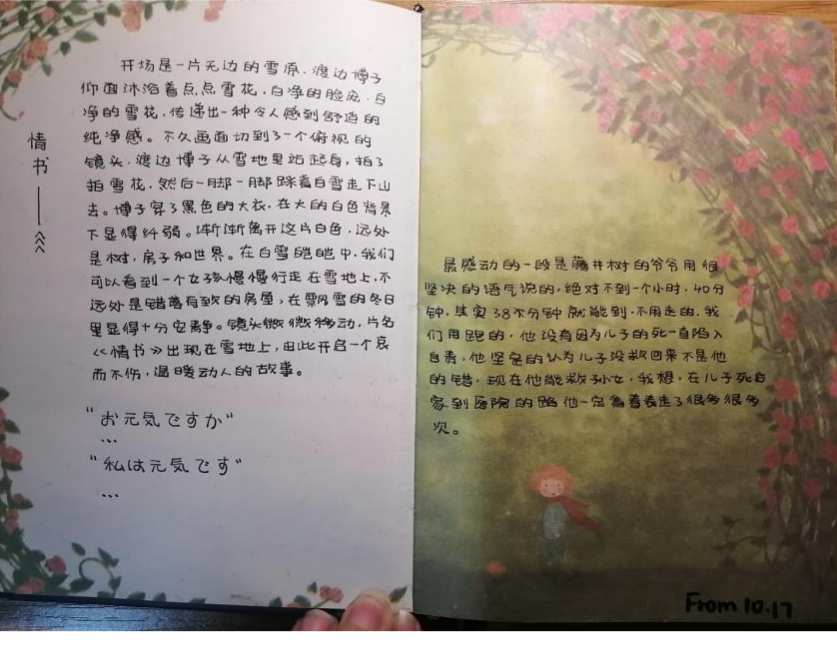 情书——《
开场是一片无边的雪原，渡边博子
仰面沐浴着点点雪花，白净的脸庞，白
净的雪花，传递出一种令人感到舒适的
纯净感。不久画面切到了一个俯视的
镜头，渡边博子从雪地里站起身，拍了
拍雪花，然后一脚一脚踩着白雪走下山
去。博子穿了黑色的大衣，在大的白色背景
下显得纤弱。渐渐离开这片白色，远处
是树，房子和世界。在白雪皑皑中，我们
可以看到一个女孩慢慢行走在雪地上，不
远处是错落有致的房屋，在飘雪的冬日
里显得十分安静。镜头微微移动，片名
《情书》出现在雪地上，由此开启一个哀
而不伤，温暖动人的故事。
"お元気ですか"
…
"私は元気です"
…
最感动的一段是藤井树的爷爷用很
坚决的语气说的，绝对不到一个小时，40分
钟，其实38分钟就能到，不用走的，我
们用跑的，他没有因为儿子的死一直陷入
自责，他坚定的认为儿子没救回来不是他
的错，现在他能救孙女，我想，在儿子死后
家到医院的路他一定看着表走了很多很多
次。
From 10.17